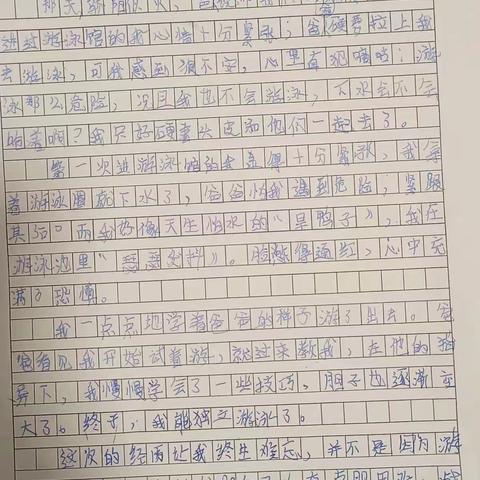 那天,骄阳似火,
进过游泳馆的我心情十分紧张;爸硬要拉上我
去游泳,可我感到很不安,心里直犯嘀咕:游
泳那么危险,况且我也不会游泳,下水会不会
呛着啊?我只好硬着头皮和他们一起去了。
第一次进游泳馆的我显得十分紧张,我拿
着游泳圈就下水了,爸爸怕我遇到危险,紧跟
其后。而我好像天生怕水的“旱鸭子”,我在
游泳池里“瑟瑟发抖”。脸涨得通红,心中充
满了恐惧。
我一点点地学着爸爸的样子游了出去。爸
爸看见我开始试着游,就过来教我,在他的指
导下,我慢慢学会了一些技巧,胆子也逐渐变
大了。终于,我能独立游泳了。
这次的经历让我终生难忘,并不是因为游